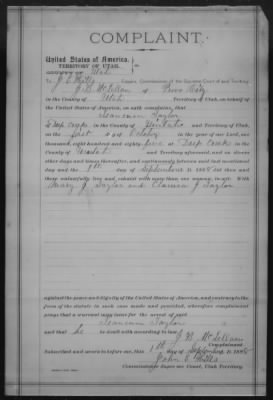 COMPLAINT.
United States of America,
TERRITORY OF UTAH,
COUNTY OF Utah
To J. E. Hills Esquire, Commissioner of the Supreme Court of said Territory
J. B. McLellan of Provo City
in the County of Utah Territory of Utah, on behalf of
the United States of America, on oath complains, that
Taylor
in the County of and Territory of Utah,
on the first day of October in the year of our Lord, one
thousand, eight hundred and eighty-five at
County of Territory aforesaid, and on divers
other days and times thereafter, and continuously between said last mentioned
day and the 1st day of September A. D. 1888 did then and
there unlawfully live and cohabit with more than one woman, to-wit: With
J Taylor and J Taylor
against the peace and dignity of the United States of America, and contrary to the
form of the statute in such case made and provided, wherefore complainant
prays that a warrant may issue for the arrest of said
Taylor
and that he be dealt with according to law.
J B McLellan
Complainant
Subscribed and sworn to before me, this 1st day of September A. D. 1888
John E Hills
Commissioner Supreme Court, Utah Territory.